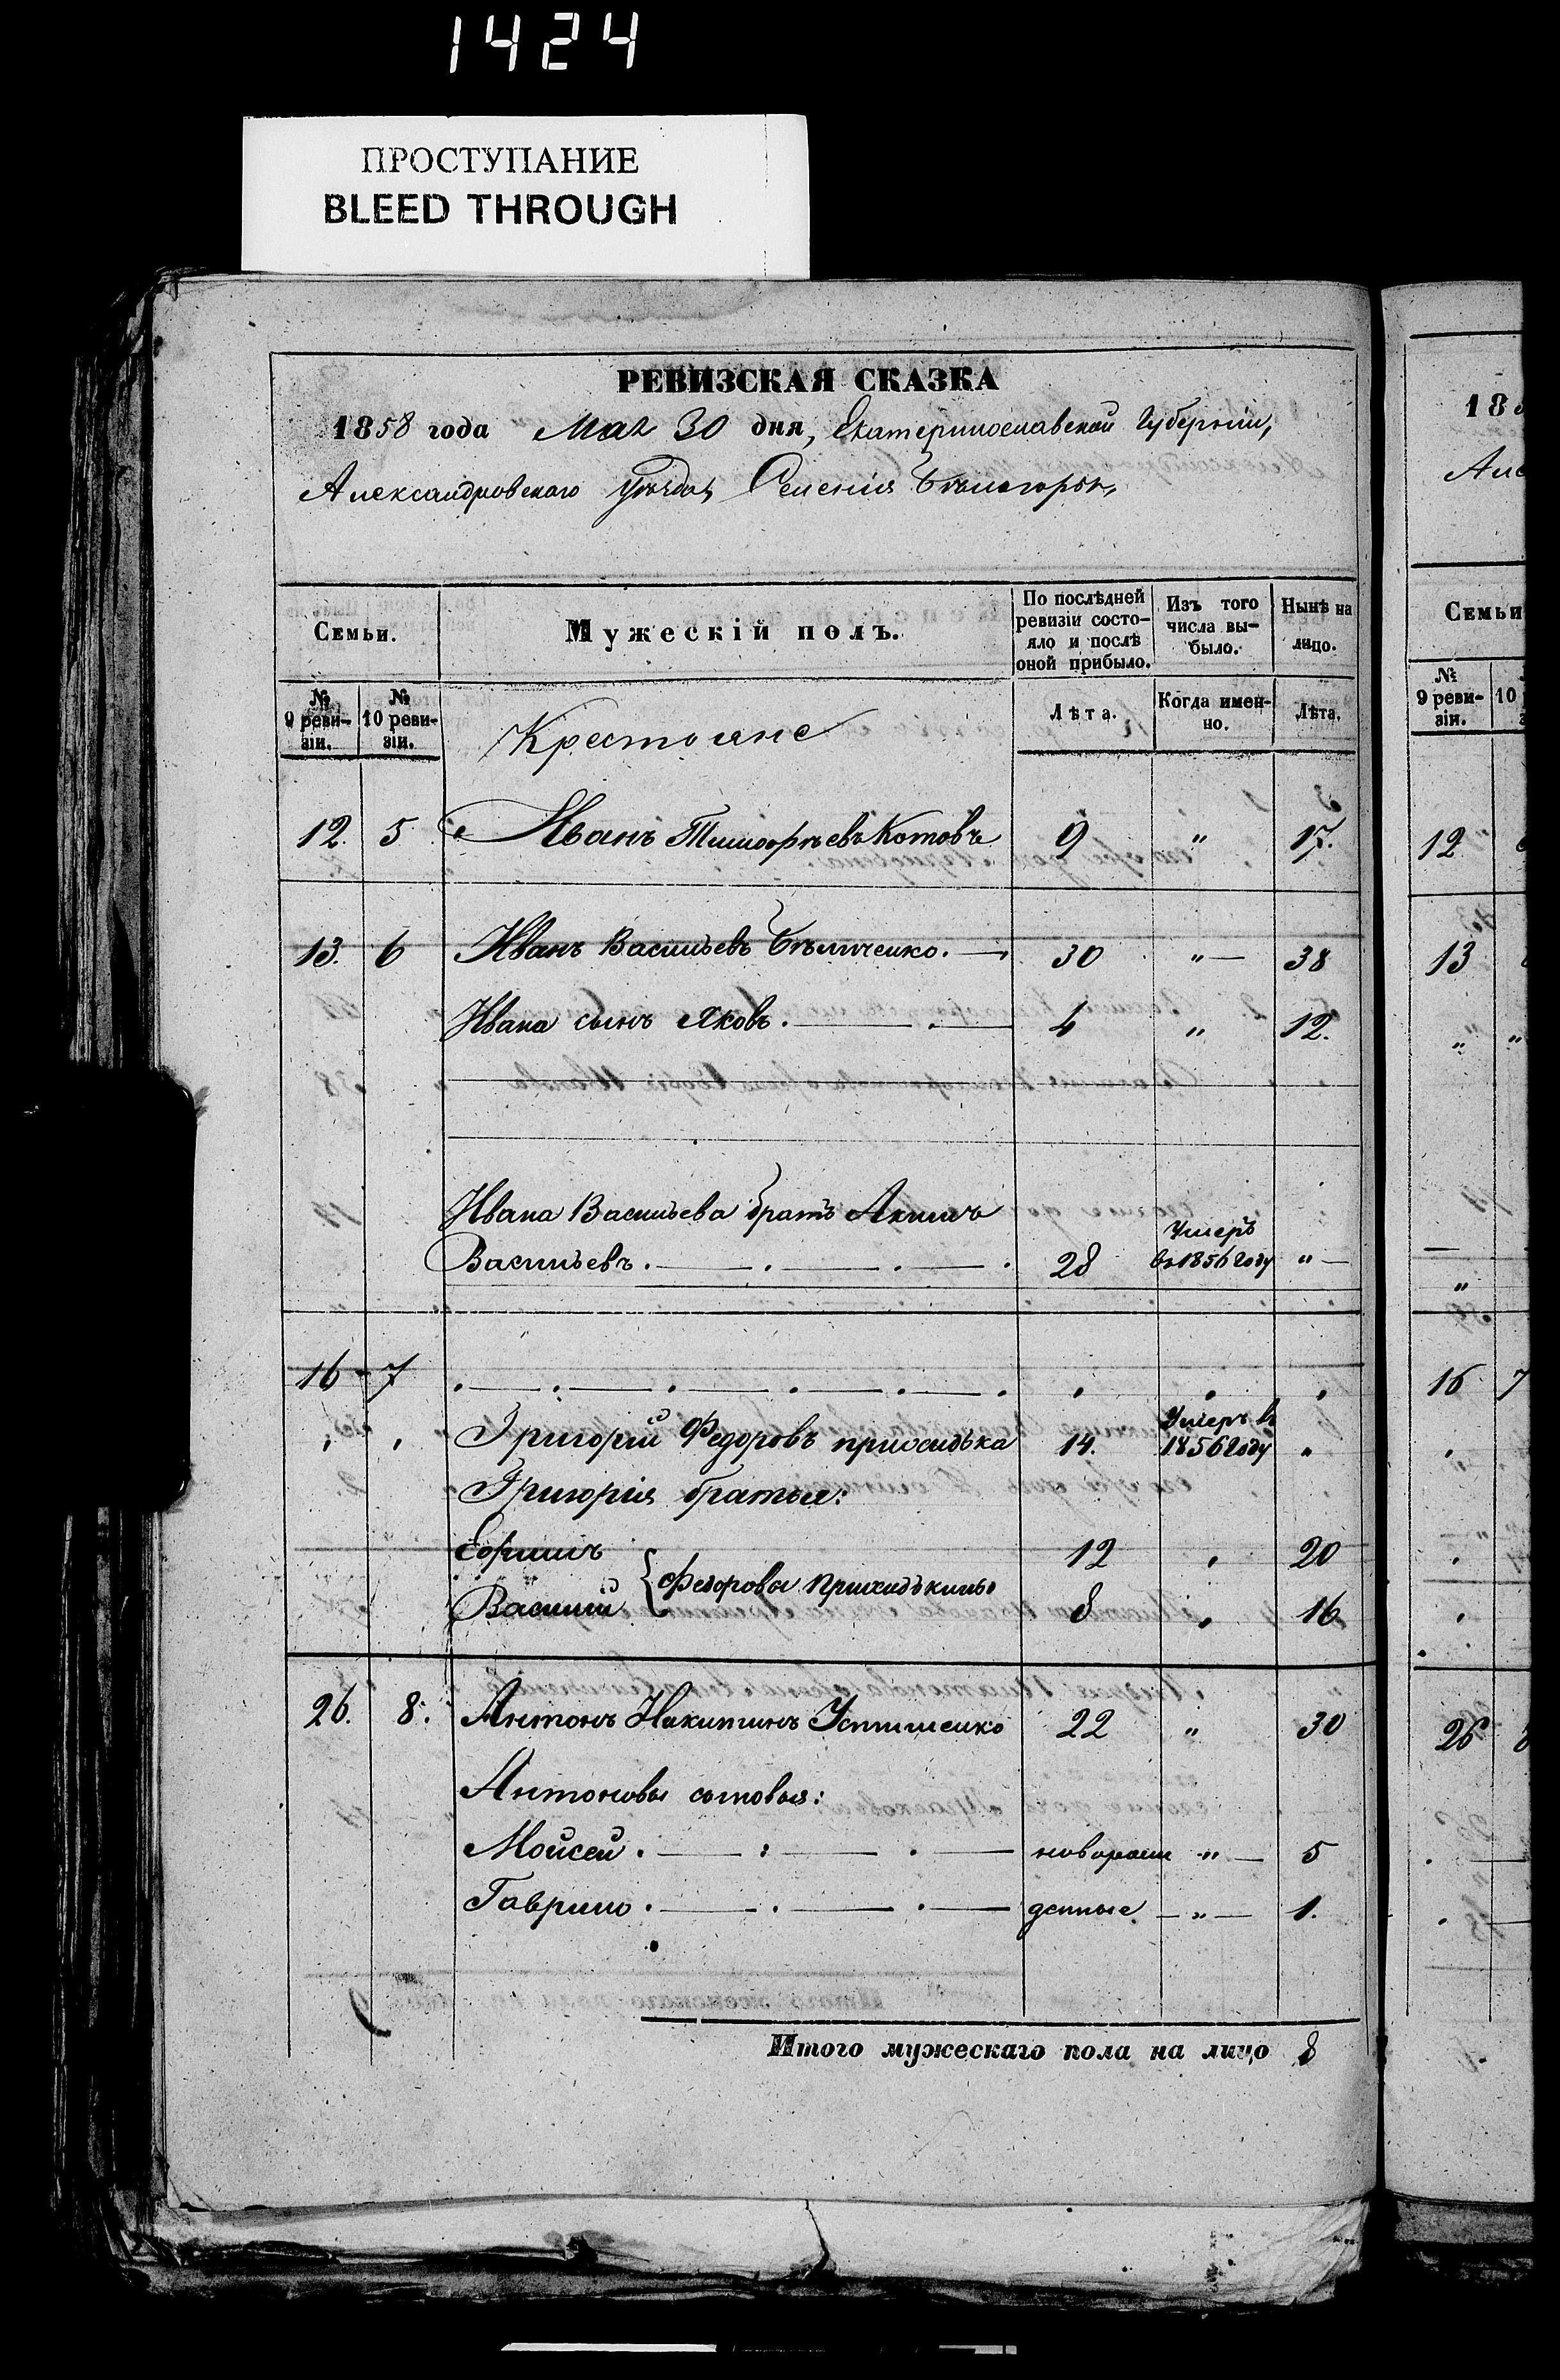 1424
ПРОСТУПАНИЕ
BLEED THROUGH
РЕВИЗСКАЯ СКАЗКА
1858 года Мая 30 дня, Екатеринославской Губерніи,
Александровскаго Уѣзда, Селенія Бѣлагорья,
Семьи.
Мужескій полъ.
По послѣдней ревизіи состо-
яло и послѣ оной прибыло.
Изъ того числа вы-
было.
Нынѣ на лицо.
№ 9 реви-
зіи.
№ 10 реви-
зіи.
Крестьяне
Лѣта.
Когда имен-
но.
Лѣта.
12. 5 Иванъ Тимофѣевъ Котовъ 9 " 17.
13. 6 Иванъ Васильевъ Бѣличенко. 30 " 38
Ивана сынъ Яковъ. 4 " 12.
Ивана Васильева братъ Акимъ
Васильевъ. 28 Умеръ въ 1856 году "
16 7
Григорій Федоровъ 14. Умеръ въ 1856 году "
Григорія братья:
Ефимъ 12 " 20
Василій { Федоровы 8 " 16
26. 8. Антонъ Никитинъ Устименко 22 " 30
Антоновы сыновья:
Мойсей. новорож " 5
Гаврило. денные " 1.
Итого мужескаго пола на лицо 8
18
Але
Семьи
№ 9 реви-
зіи.
10
12
13
16 7
26